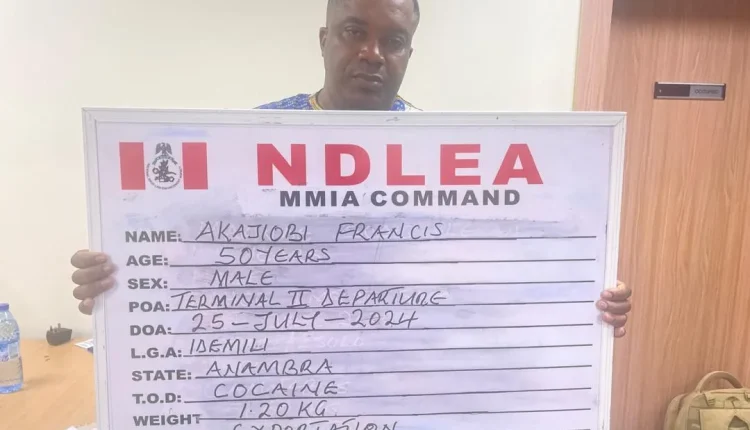 NDLEA
MMIA COMMAND
NAME: AKAJIOBI FRANCIS
AGE: 50 YEARS
SEX: MALE
POA: TERMINAL II DEPARTURE
DOA: 25-JULY-2024
L.G.A: IDEMILI
STATE: ANAMBRA
T.O.D: COCAINE
WEIGHT 1.20 KG
EXPORTATION